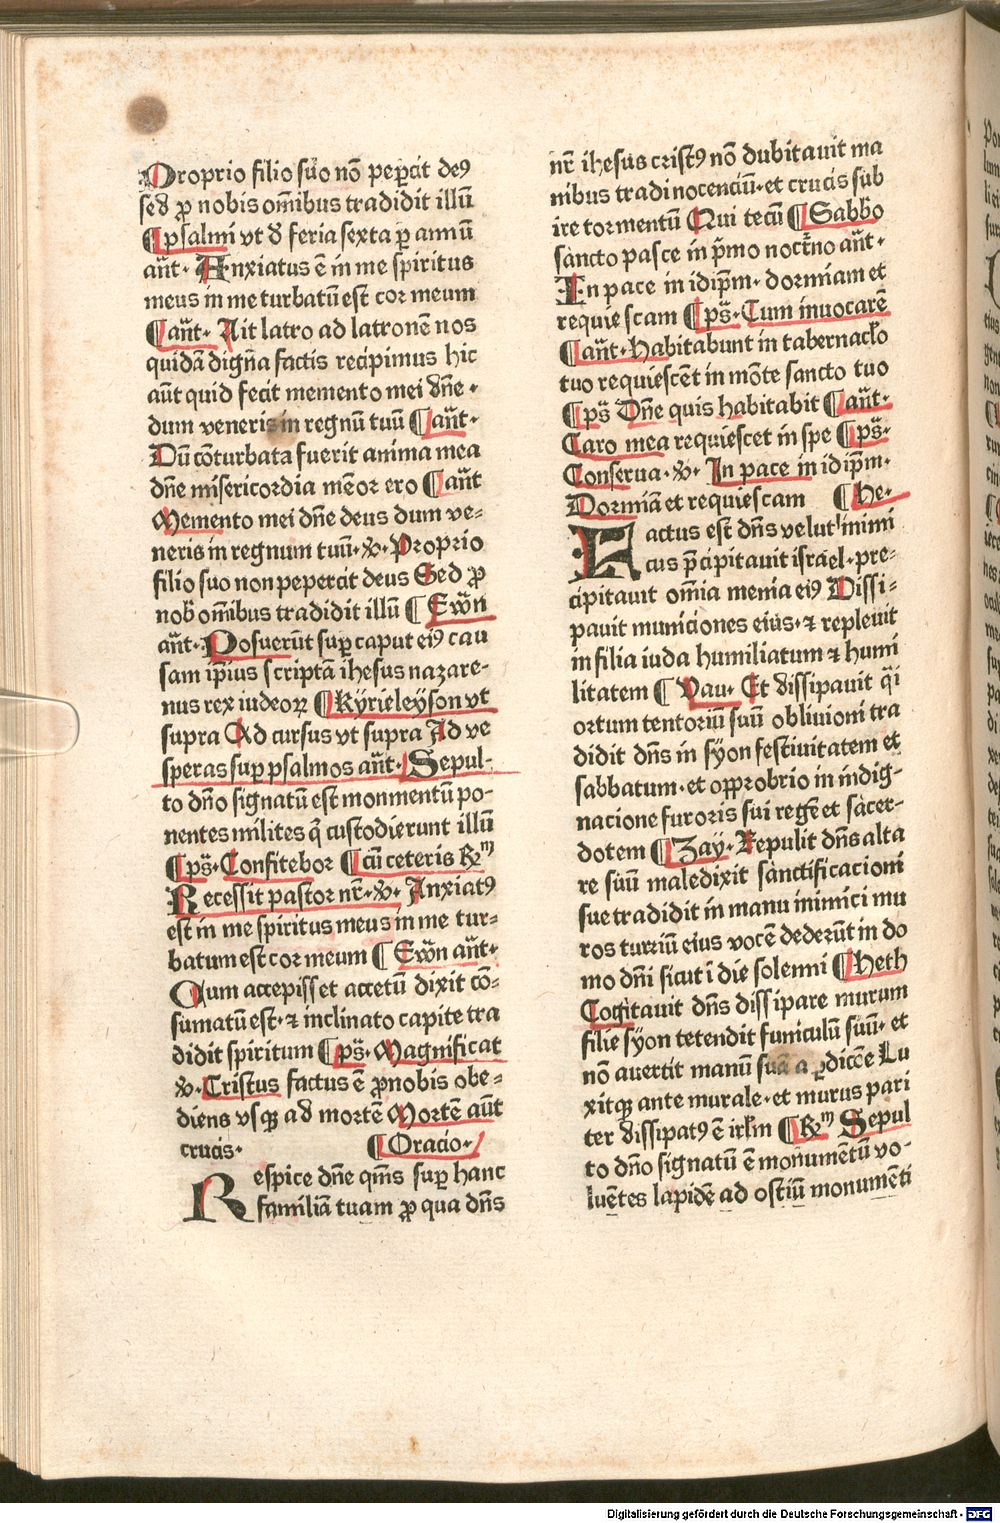 Proprio filio suo nō peꝑcit deꝰ
sed ꝓ nobis om̄ibus tradidit illū
¶ psalmi vt d̄ feria sexta ꝑ annū
an̄t· Anxiatus ē in me spiritus
meus in me turbatū est cor meum
¶ an̄t· Ait latro ad latronē nos
quidā digna factis recipimus hic
aūt quid fecit memento mei dn̄e ·
dum veneris in regnū tuū ¶ an̄t·
Dū cōturbata fuerit anima mea
dn̄e misericordia mēor ero ¶ an̄t
Memento mei dn̄e deus dum ve-
neris in regnum tuū·v̄· Proprio
filio suo non pepercit deus Sed ꝓ
nob̄ om̄ibus tradidit illū ¶ Ewn̄
an̄t· Posuerūt suꝑ caput eiꝰ cau
sam ip̄ius scriptā ihesus nazare-
nus rex iudeoꝝ ¶ Kyrieleyson vt
supra Ad cursus vt supra Ad ve
speras suꝑ psalmos an̄t· Sepul-
to dn̄o signatū est monmentū po-
nentes milites q̄ custodierunt illū
¶ ps̄· Confitebor ¶ cū ceteris Rm̄
Recessit pastor nr̄·v̄· Anxiatꝰ
est in me spiritus meus in me tur-
batum est cor meum ¶ Ewn̄ an̄t·
Cum accepisset accetū dixit cō-
sumatū est·⁊ inclinato capite tra
didit spiritum ¶ ps̄· Magnificat
v̄· Cristus factus ē ꝓ nobis obe-
diens vsqꝫ ad mortē Mortē aūt
crucis· ¶ Oracio·
Respice dn̄e qm̄s suꝑ hanc
familiā tuam ꝓ qua dn̄s
nr̄ ihesus cristꝰ nō dubitauit ma
nibus tradi nocenciū·et crucis sub
ire tormentū Qui tecū ¶ Sabb̄o
sancto pasce in pͥmo noct̄no an̄t·
In pace in idip̄m· dormiam et
requiescam ¶ ps̄· Cum inuocarē
¶ an̄t· Habitabunt in tabernacl̄o
tuo requiescēt in mōte sancto tuo
¶ ps̄ Dn̄e quis habitabit ¶ an̄t·
Caro mea requiescet in spe ¶ ps̄·
Conserua·v̄· In pace in idip̄m·
Dormiā et requiescam ¶ He·
Factus est dn̄s velut inimi
cus p̄cipitauit israel·pre-
cipitauit om̄ia menia eiꝰ Dissi-
pauit municiones eius·⁊ repleuit
in filia iuda humiliatum ⁊ humi
litatem ¶ Vau· Et dissipauit q̄i
ortum tentoriū suū obliuioni tra
didit dn̄s in syon festiuitatem et
sabbatum·et opprobrio in indig-
nacione furoris sui regē et sacer-
dotem ¶ Zay· Repulit dn̄s alta
re suū maledixit sanctificacioni
sue tradidit in manu inimici mu
ros turriū eius vocē dederūt in do
mo dn̄i sicut ī die solenni ¶ Heth
Cogitauit dn̄s dissipare murum
filie syon tetendit funiculū suū· et
nō auertit manū suā a ꝑdicōe Lu
xitqꝫ ante murale·et murus pari
ter dissipatꝰ ē irl̄m ¶ Rm̄ Sepul
to dn̄o signatū ē monumētū vo-
luētes lapidē ad ostiū monumēti
Digitalisierung gefördert durch die Deutsche Forschungsgemeinschaft - DFG